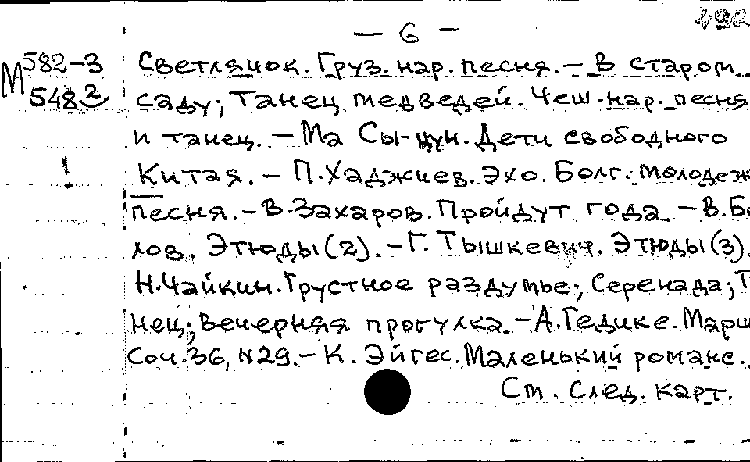 — 6 —
М 582-3 Светлячок. Груз. нар. песня. — В старом
548 2 саду; Танец медведей. Чеш. нар. песня
и танец. — Ма Сы-цун. Дети свободного
Китая. — П. Хаджиев. Эхо. Болг. молодеж
песня. — В. Захаров. Пройдут года — В. Бе
лов. Этюды (2). — Г. Тышкевич. Этюды (3).
Н. Чайкин. Грустное раздумье; Серенада; Т
нец; Вечерняя прогулка. — А. Гедике. Марш
Соч. 36, N29. — К. Эйгес. Маленький романс.
См. след. карт.